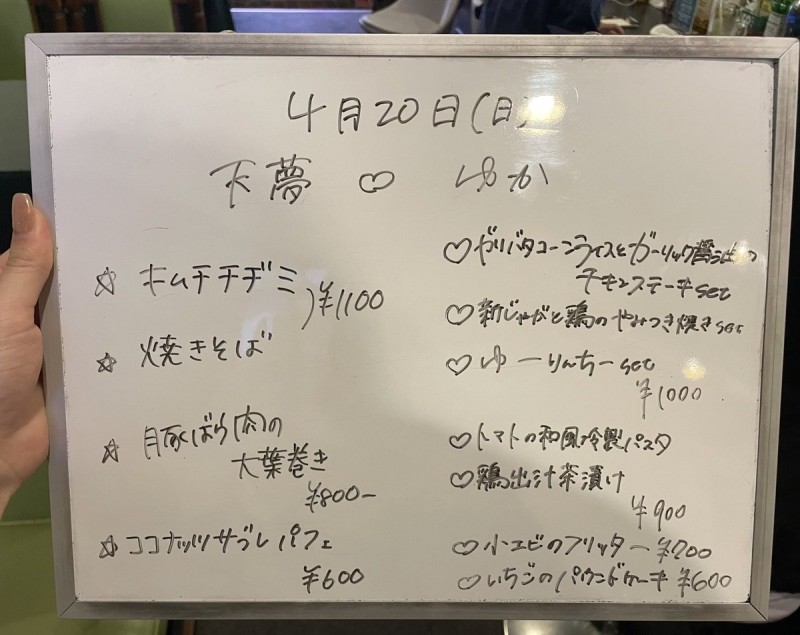 4月20日(日)
天夢 ♡ ゆか
☆ キムチチヂミ
¥1100
☆ 焼きそば
☆ 豚ばら肉の
大葉巻き
¥800-
☆ ココナッツサブレパフェ
¥600
♡ ガリバタコーンライスとガーリック醤油の
チキンステーキset
♡ 新じゃがと鶏のやみつき焼きset
♡ ゆーりんちーset
¥1000
♡ トマトの和風冷製パスタ
♡ 鶏出汁茶漬け
¥900
♡ 小エビのフリッター ¥700
♡ いちごのパウンドケーキ ¥600